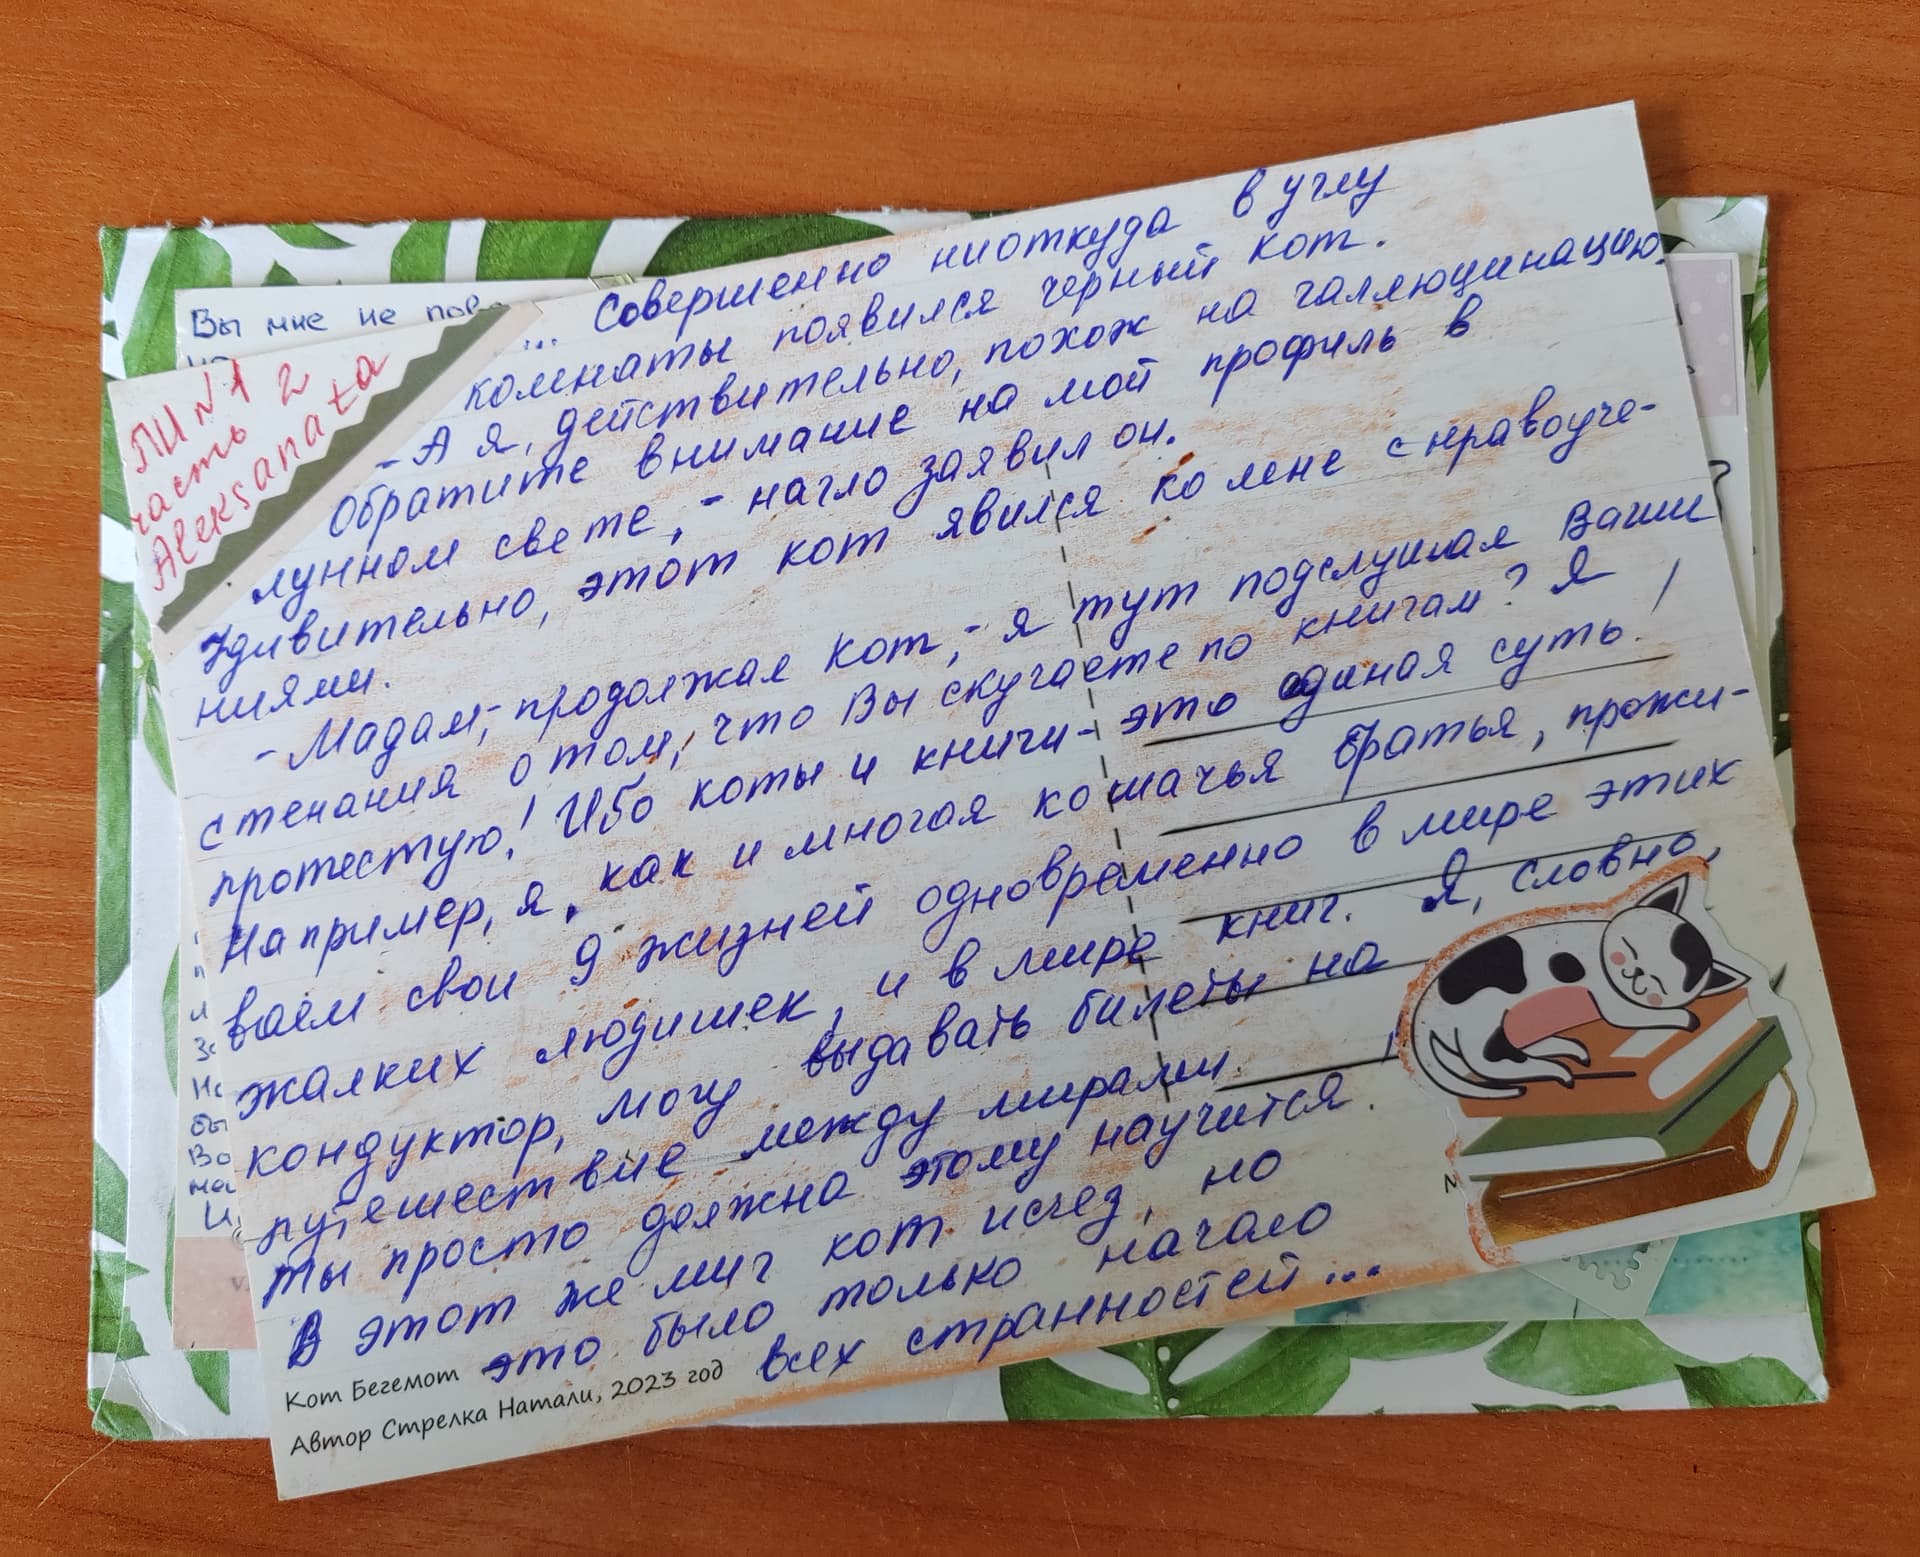 Вы мне не
ПИ №1
часть 2
Aleksanata
... Совершенно ниоткуда в углу
комнаты появился черный кот.
- А я, действительно, похож на галлюцинацию.
Обратите внимание на мой профиль в
лунном свете, - нагло заявил он.
Удивительно, этот кот явился ко мне с нравоуче-
ниями.
- Мадам, - продолжал кот, - я тут подслушал Ваши
стенания о том, что Вы скучаете по книгам? Я
протестую! Ибо коты и книги - это единая суть!
Например, я, как и многая кошачья братья, прожи-
ваем свои 9 жизней одновременно в мире этих
жалких людишек, и в мире книг. Я, словно,
кондуктор, могу выдавать билеты на
путешествие между мирами.
Ты просто должна этому научится!
В этот же миг кот исчез, но
это было только начало
всех странностей...
Кот Бегемот
Автор Стрелка Натали, 2023 год